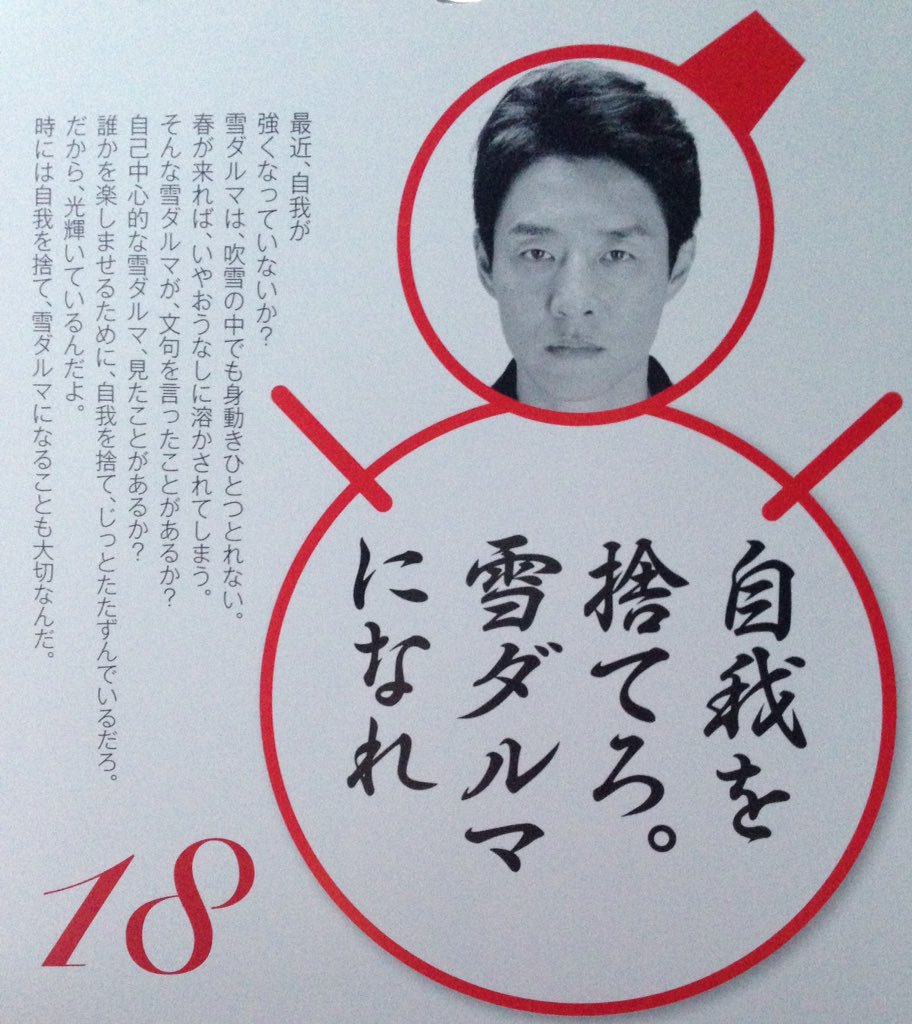 自我を
捨てろ。
雪ダルマ
になれ
最近、自我が
強くなっていないか？
雪ダルマは、吹雪の中でも身動きひとつとれない。
春が来れば、いやおうなしに溶かされてしまう。
そんな雪ダルマが、文句を言ったことがあるか？
自己中心的な雪ダルマ、見たことがあるか？
誰かを楽しませるために、自我を捨て、じっとたたずんでいるだろ。
だから、光輝いているんだよ。
時には自我を捨て、雪ダルマになることも大切なんだ。
18